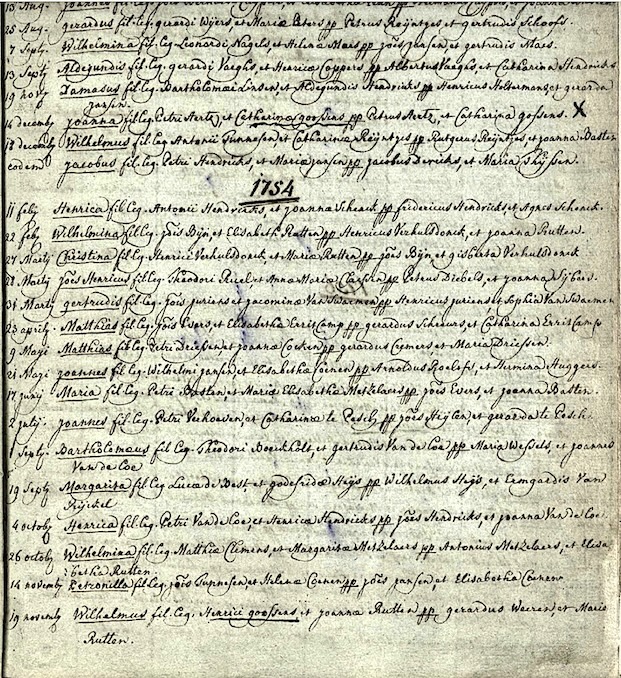 25 Aug. gerardus fil. leg. gerardi Wijers et Mariæ Peters pp Petrus Reijntjes et gertrudis Schoofs.
7 Septy Wilhelmina fil. Leg. Leonardi Nagels et Helena Maes pp joës jansen et gertrudis Maes.
13 Septy Aldegundis fil. leg. gerardi Vaeghs, et Henricæ Cuypers pp Albertus Vaeghs et Catharina Hendricks
19 novy Damasus fil. Leg. Bartholomæi Linsen et Aldegundis Hendricks pp Henricus Holtermans et gerarda
jansen.
14 decemby joanna fil. leg. Petri Aertz, et Catharinæ goossens pp Petrus Aertz, et Catharina gossens. X
18 decemby Wilhelmus fil. Leg. Antonii Tunnesen et Catharinæ Reijntjes pp Rutgerus Reijntjes, et joanna Basten
eodem jacobus fil. leg. Petri Hendricks, et Mariæ jansen pp jacobus Dericks, et Maria Thijssen.
1754
11 feby Henrica fil. leg. Antonii Hendricks, et joannæ Schenck pp fridericus Hendricks, et Agnes Schenck.
22 feby Wilhelmina fil. leg. joës Bijn, et Elisabeth Rutten pp Henricus Verhuldonck, et joanna Rutten.
27 Marty Christina fil. leg. Henrici Verhuldonck, et Mariæ Rutten pp joës Bijn, et gisberta Verhuldonck
28 Marty joës Henricus fil. leg. Theodori et Anna Maria Claessen pp Petrus Diebels, et joanna Sijbers.
31 Marty gertrudis fil. leg. joïs juriens et jacominæ Van Swaemen pp Henricus juriens, et Sophia Van Swaemen
23 aprily. Matthias fil. leg. joïs Evers, et Elisabetha ErritCamp pp gerardus Scheurs et Catharina ErritCamp
9 Mayi Matthias fil. leg. Petri Driessen, et joannæ Cocken pp gerardus Clemers, et Maria Driessen.
21 Mayi joannes fil. leg. Wilhelmi jansen, et Elisabetha Coenen pp Arnoldus Roelofs, et Hermina Huggers.
17 juny Maria fil. leg. Petri Basten et Maria Elisabetha Metzelaers pp joës Evers, et joanna Basten.
2 july. joannes fil. leg. Petri Verhoeven, et Catharinæ te Pesch pp joës Heijlen, et gerarda te Pesch.
1 Septy. Bartholomæus fil. leg. Theodori Boeckholt, et gertrudis Van de Loe pp Maria Wessels, et joannes
Van de Loe
19 Septy Margarita fil. Leg. Lucæ de Best, et godefridæ Heijs pp Wilhelmus Heijs, et Ermgardis Van
4 octoby Henrica fil. Leg. Petri Van de Loe, et Henricæ Hendricks pp joës Hendricks, et joanna Van de Loe.
26 octoby Wilhelmina fil. leg. Matthiæ Clemens, et Margaritæ Metzelaers pp Antonius Metzelaers, et Elisa
betha Rutten.
14 novemby Petronilla fil. leg. joïs Tunnesen et Helenæ Coenen pp joës jansen, et Elisabetha Coenen
19 novemby Wilhelmus fil. Leg. Henrici goossens, et joannæ Rutten pp gerardus Weeren, et Maria
Rutten.